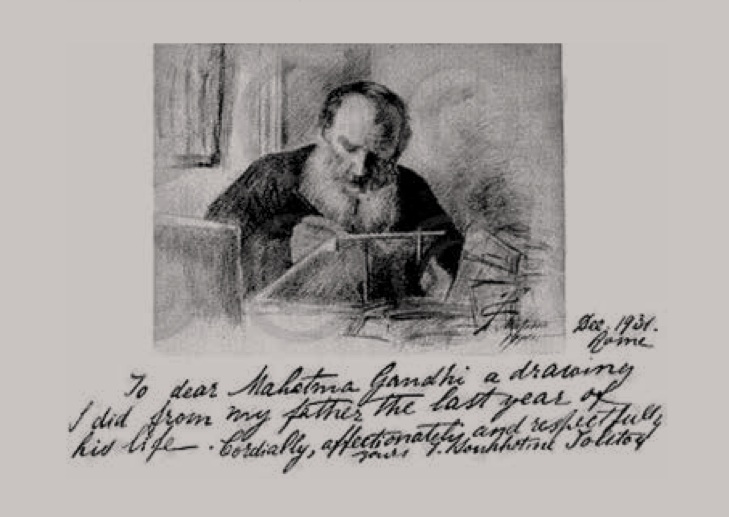 Dec. 1931.
Rome
To dear Mahatma Gandhi a drawing
I did from my father the last year of
his life. Cordially, affectionately and respectfully
yours T. Soukhotine Tolstoy